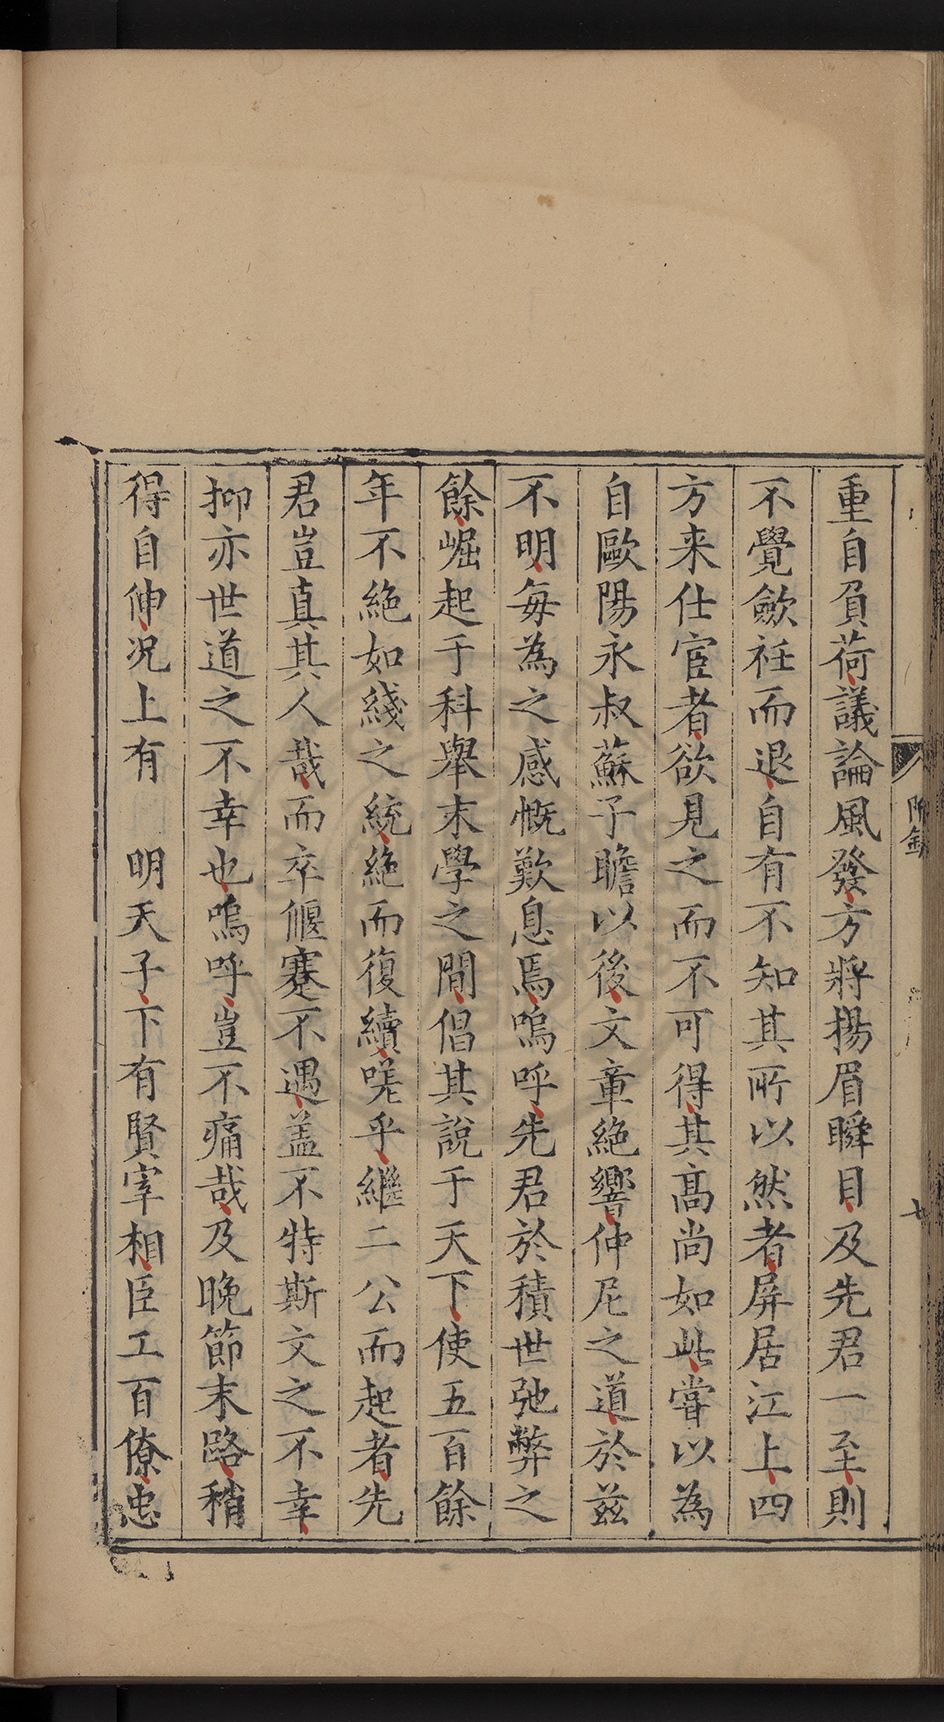 重自負荷議論風發方將揚眉瞬目及先君一至則
不覺歛衽而退自有不知其所以然者屏居江上四
方来仕宦者欲見之而不可得其髙尚如此嘗以為
自歐陽永叔蘇子瞻以後文章絶響仲尼之道於兹
不明每為之感慨歎息焉嗚呼先君於積世弛弊之
餘崛起于科舉末學之間倡其說于天下使五百餘
年不絶如綫之統絶而復續嗟乎繼二公而起者先
君豈真其人哉而卒偃蹇不遇蓋不特斯文之不幸
抑亦世道之不幸也嗚呼豈不痛哉及晚節末路稍
得自伸况上有 明天子下有賢宰相臣工百僚忠
附錄